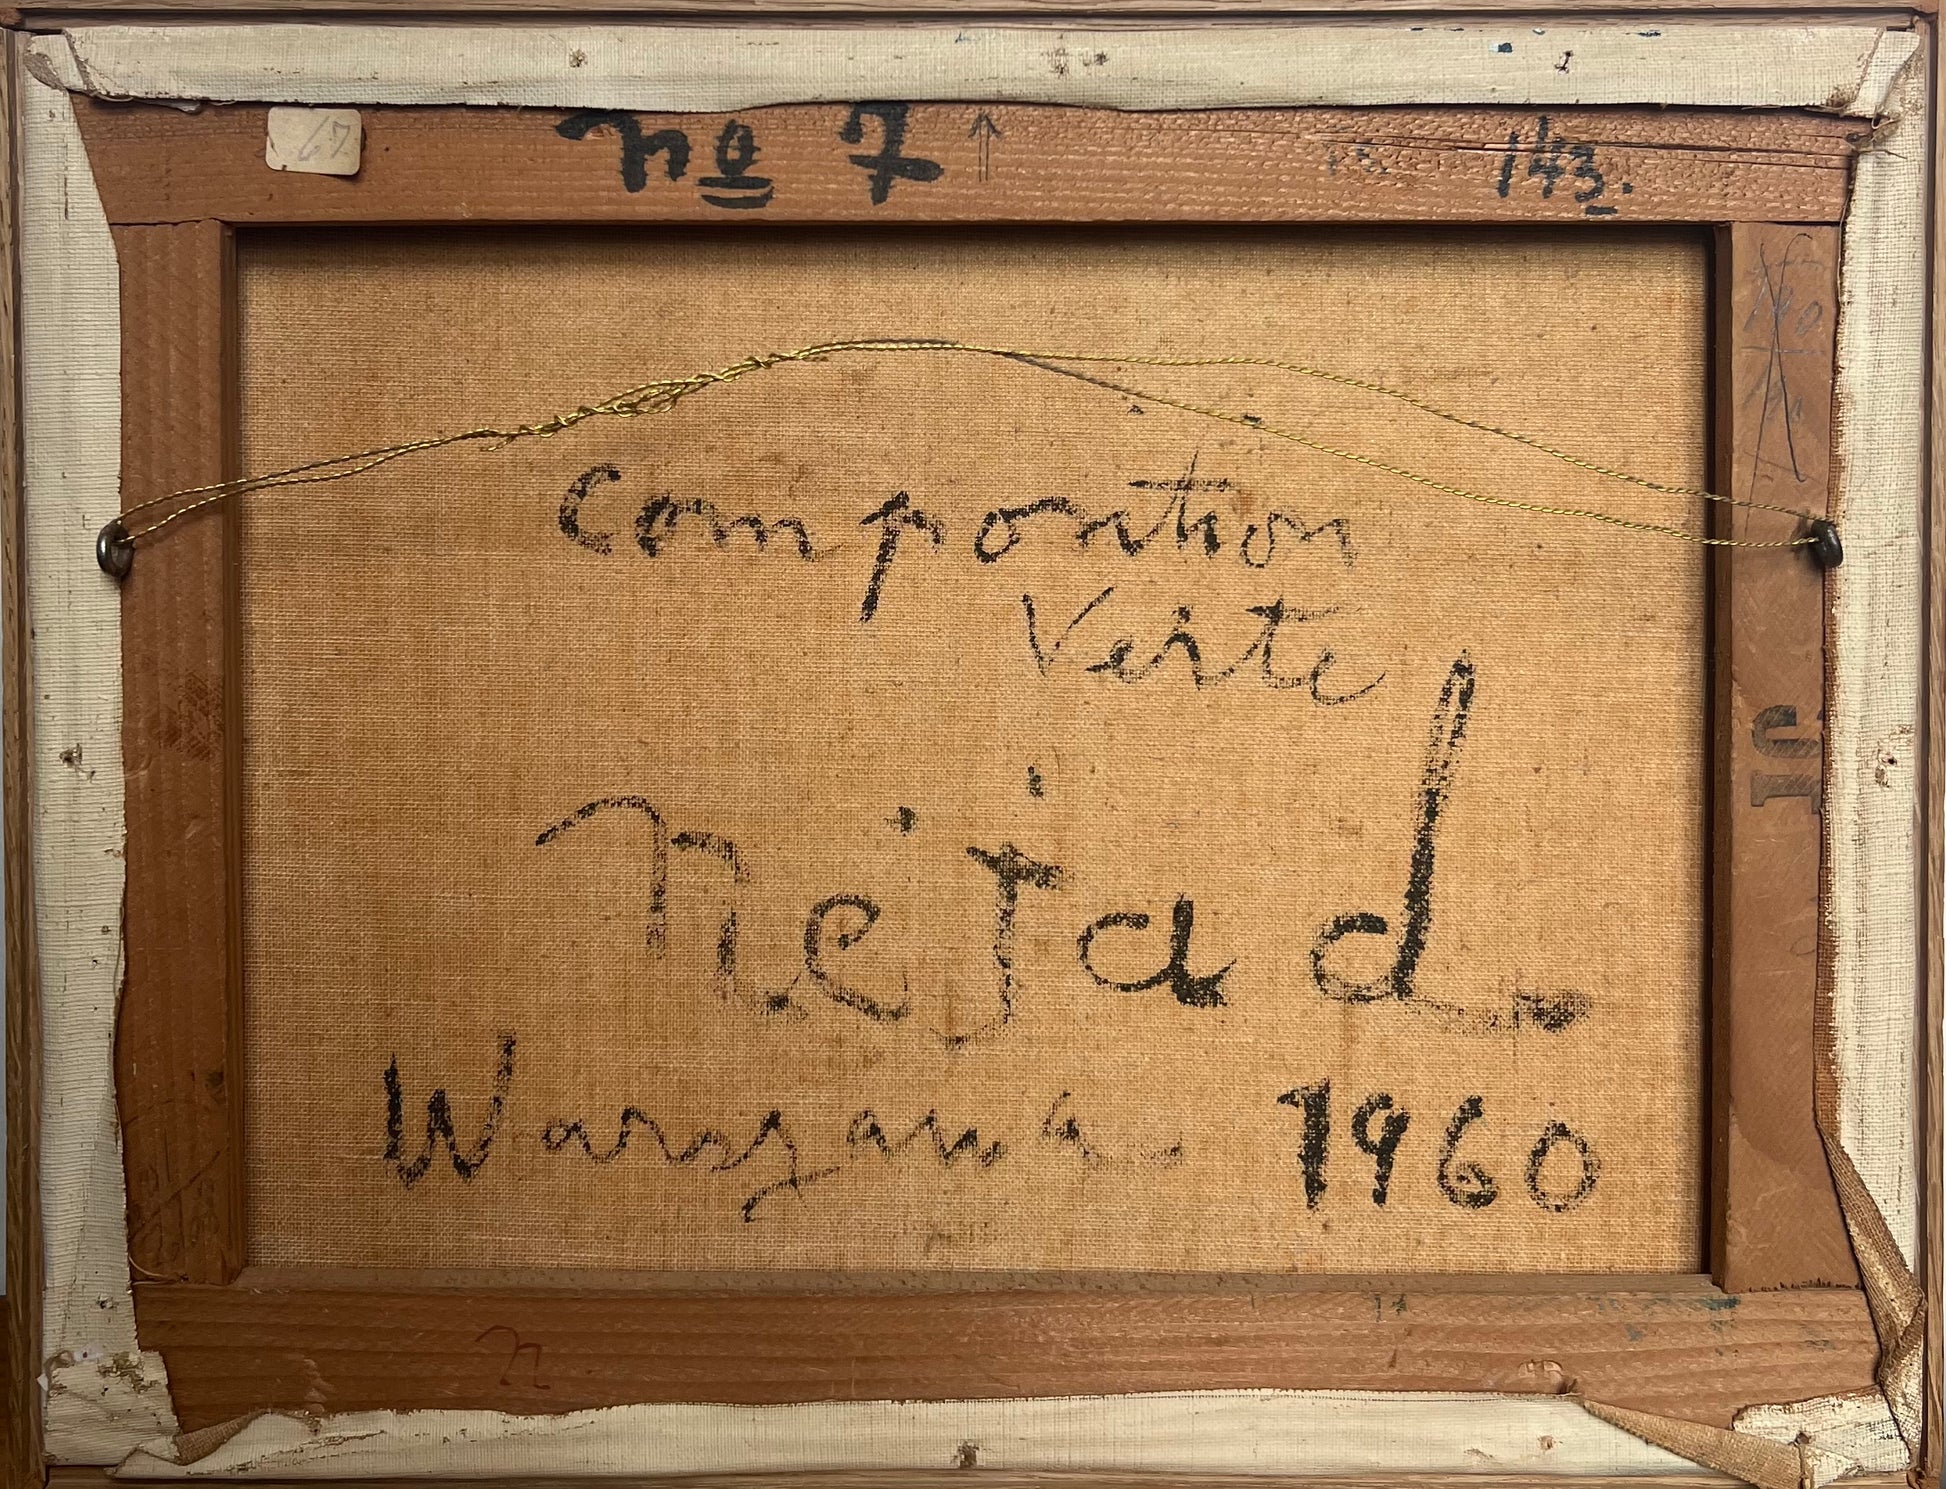 67
no 7 ↑ 143.
Composition
Verte
Nejad
Warszawa 1960
10
n